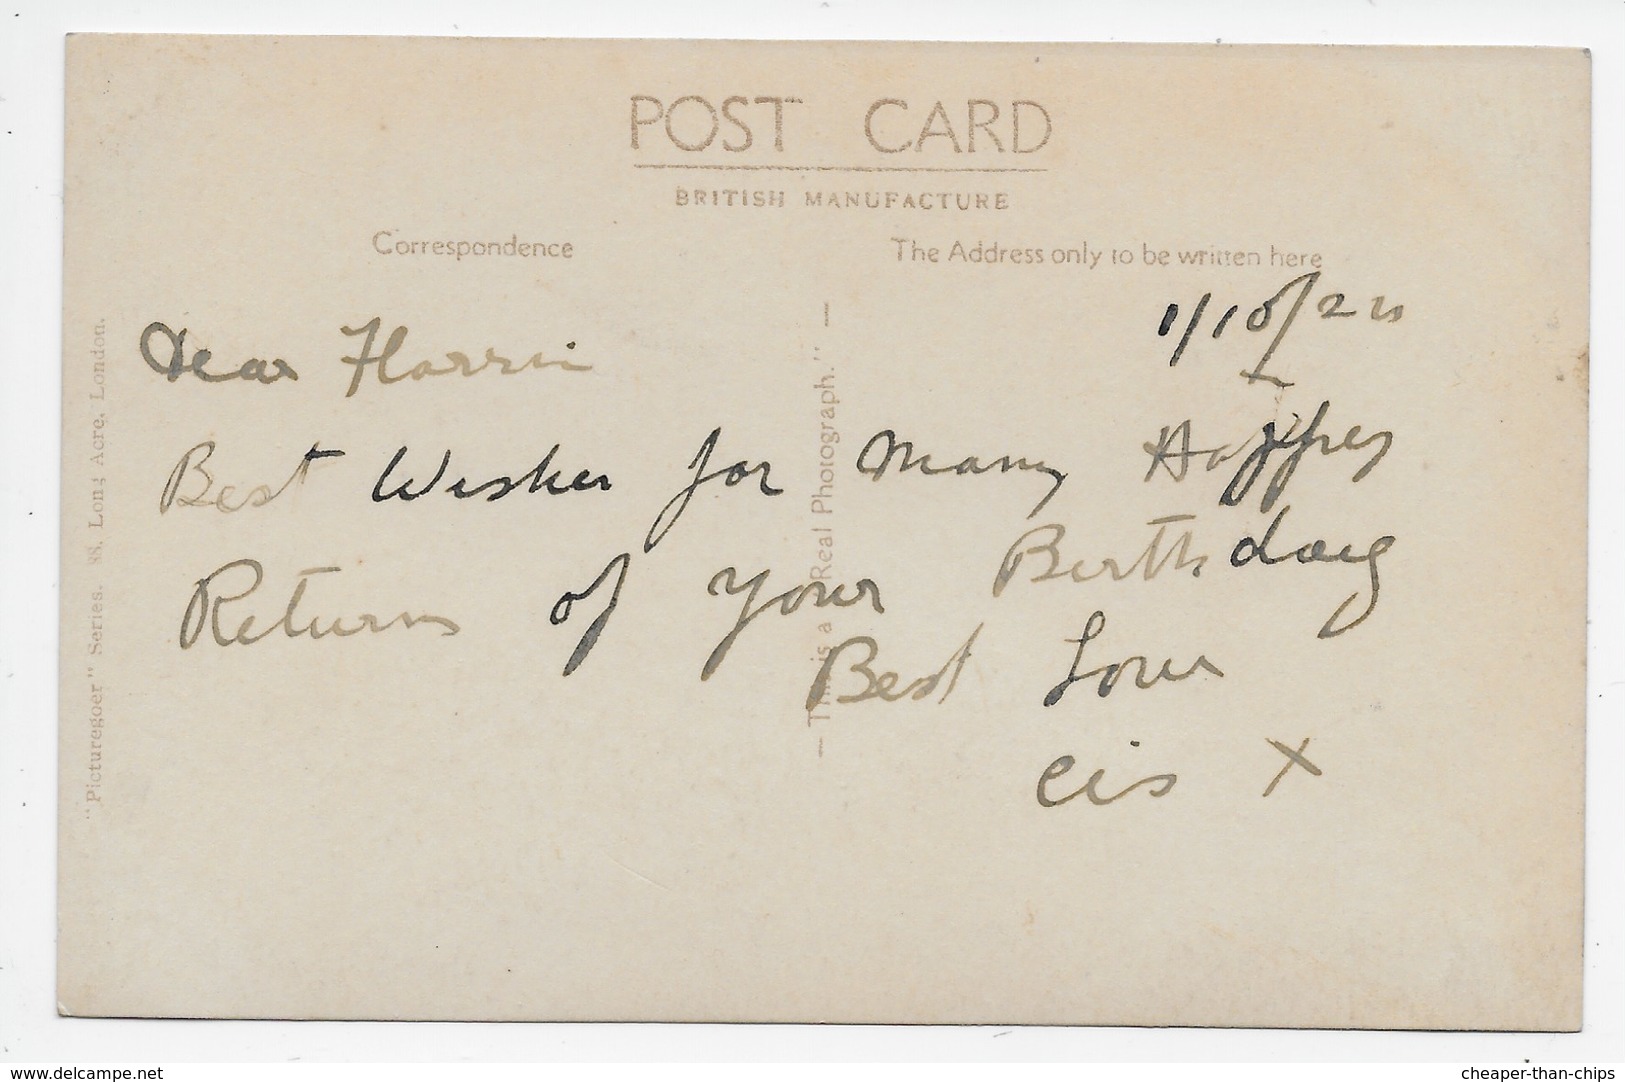 POST CARD
BRITISH MANUFACTURE
Correspondence
The Address only to be written here
1/10/22
Dear Florrie
Best Wishes for Many Happy
Returns of your Birthday
Best Love
Cis X
— This is a "Real Photograph." —
"Picturegoer" Series. 88, Long Acre, London.
www.delcampe.net
cheaper-than-chips